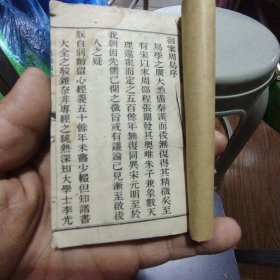 御案周易序
易學之廣大悉備秦漢而後無復得其精微矣至
有宋以來周邵程張闡發其奧唯朱子兼象數天
理違衆而定之五百餘年無復同異宋元明至於
我朝因先儒已開之微旨或有議論已見漸至啟後
人之疑
朕自弱齡留心經義五十餘年未嘗少輟但知諸書
大全之駁雜奈非專經之純熟深知大學士李光